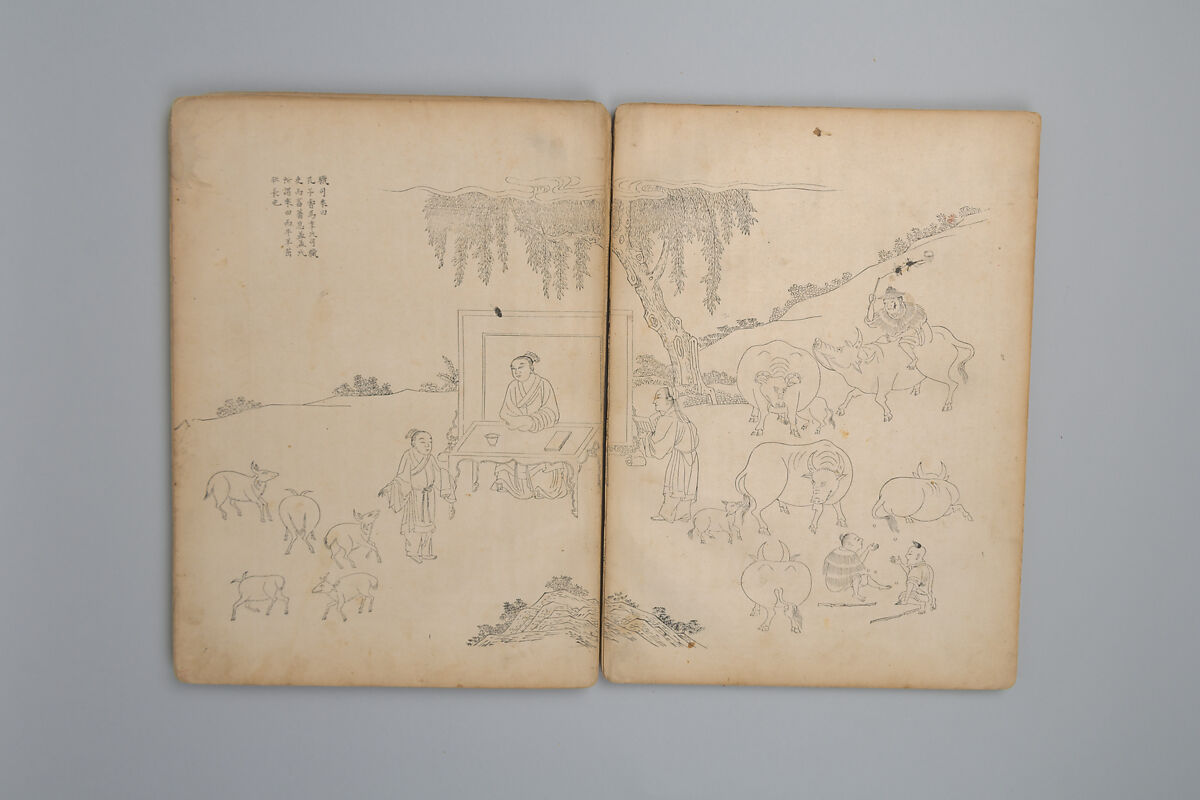 職司乘田
孔子嘗為季氏司職
吏而畜蕃息蓋孟氏
所謂乘田而牛羊茁
壯長也